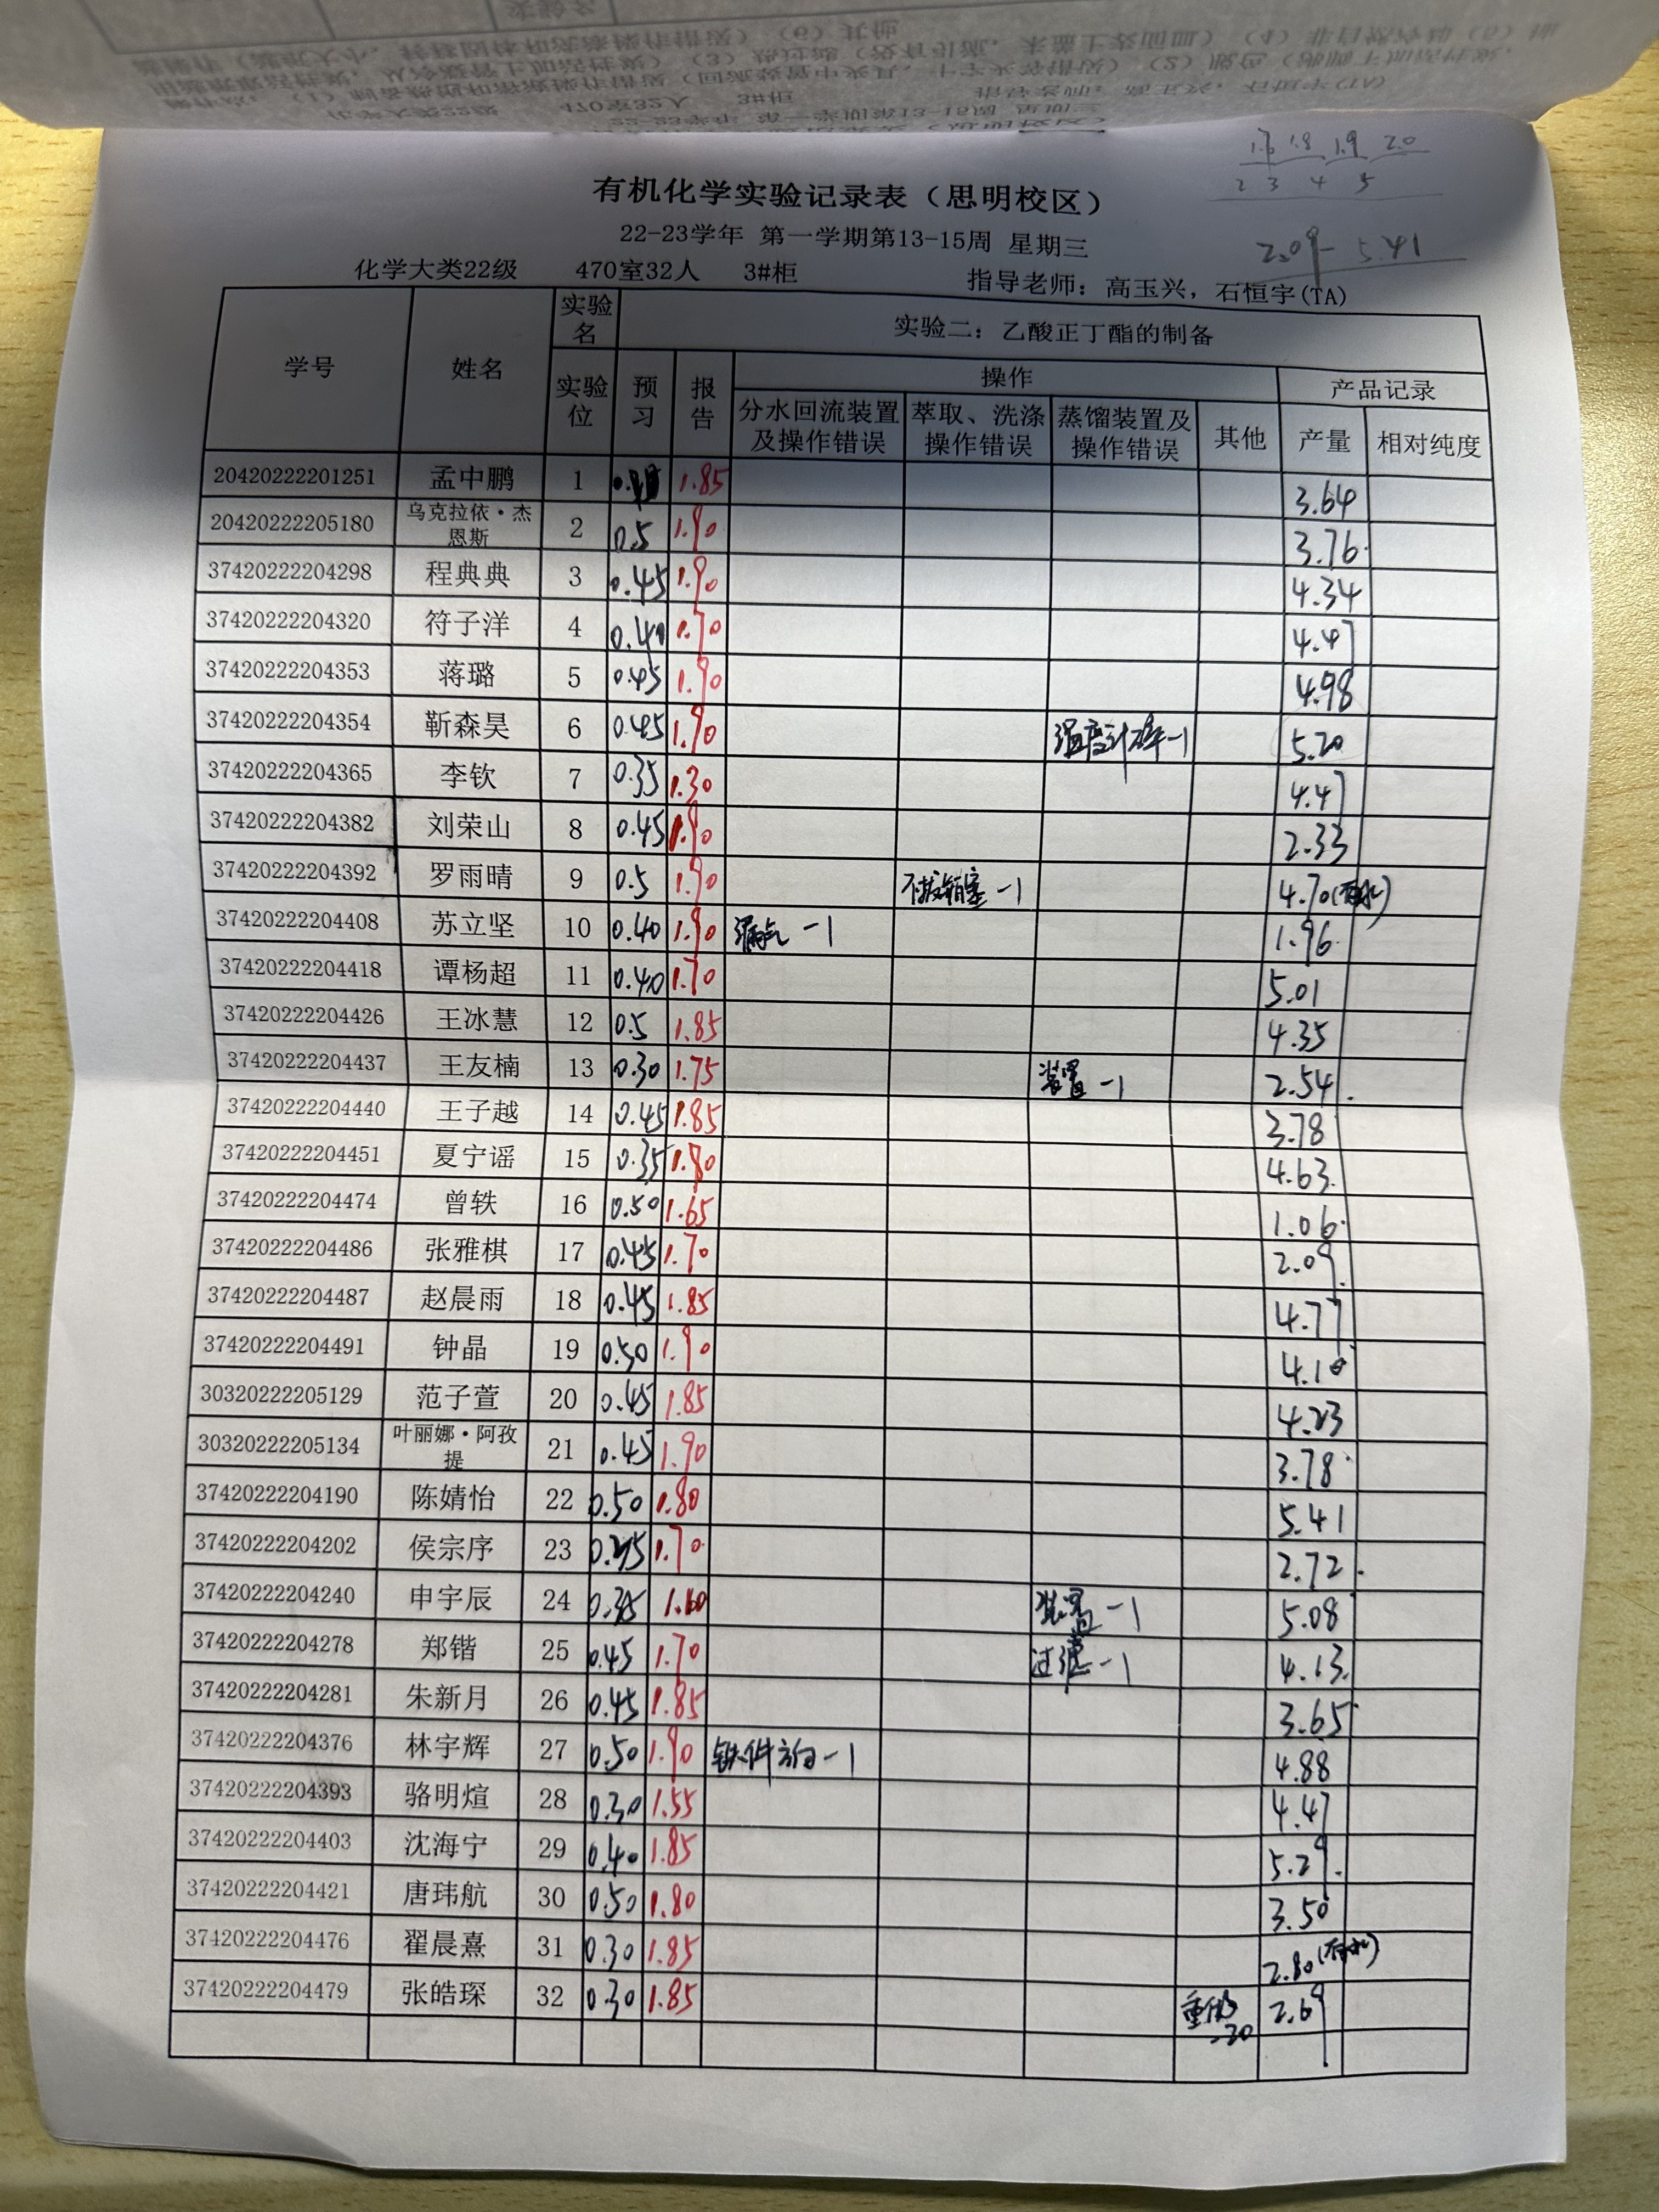 1.6 1.8 1.9 2.0
2 3 4 5
2.09-5.41
有机化学实验记录表（思明校区）
22-23学年 第一学期第13-15周 星期三
化学大类22级 470室32人 3#柜 指导老师：高玉兴，石恒宇(TA)
学号 姓名 实验名 实验二：乙酸正丁酯的制备
实验位 预习 报告 操作 产品记录
分水回流装置及操作错误 萃取、洗涤操作错误 蒸馏装置及操作错误 其他 产量 相对纯度
20420222201251 孟中鹏 1 1.85 3.64
20420222205180 乌克拉依·杰恩斯 2 0.5 1.90 3.76
37420222204298 程典典 3 0.45 1.90 4.34
37420222204320 符子洋 4 0.40 1.70 4.47
37420222204353 蒋璐 5 0.45 1.90 4.98
37420222204354 靳森昊 6 0.45 1.90 温度计 -1 5.20
37420222204365 李钦 7 0.35 1.30 4.47
37420222204382 刘荣山 8 0.45 1.90 2.33
37420222204392 罗雨晴 9 0.5 1.90 不拔销塞 -1 4.70(有水)
37420222204408 苏立坚 10 0.40 1.90 漏气 -1 1.96
37420222204418 谭杨超 11 0.40 1.70 5.01
37420222204426 王冰慧 12 0.5 1.85 4.35
37420222204437 王友楠 13 0.30 1.75 装置 -1 2.54
37420222204440 王子越 14 0.45 1.85 3.78
37420222204451 夏宁谣 15 0.35 1.80 4.63
37420222204474 曾轶 16 0.50 1.65 1.06
37420222204486 张雅棋 17 0.45 1.70 2.09
37420222204487 赵晨雨 18 0.45 1.85 4.77
37420222204491 钟晶 19 0.50 1.90 4.10
30320222205129 范子萱 20 0.45 1.85 4.23
30320222205134 叶丽娜·阿孜提 21 0.45 1.90 3.78
37420222204190 陈婧怡 22 0.50 1.80 5.41
37420222204202 侯宗序 23 1.70 2.72
37420222204240 申宇辰 24 0.35 1.60 装置 -1 5.08
37420222204278 郑锴 25 0.45 1.70 过滤 -1 4.13
37420222204281 朱新月 26 0.45 1.85 3.65
37420222204376 林宇辉 27 0.50 1.90 铁件方向 -1 4.88
37420222204393 骆明煊 28 0.30 1.55 4.47
37420222204403 沈海宁 29 0.40 1.85 5.29
37420222204421 唐玮航 30 0.50 1.80 3.50
37420222204476 翟晨熹 31 0.30 1.85 2.80(有水)
37420222204479 张皓琛 32 0.30 1.85 重做 -20 2.69